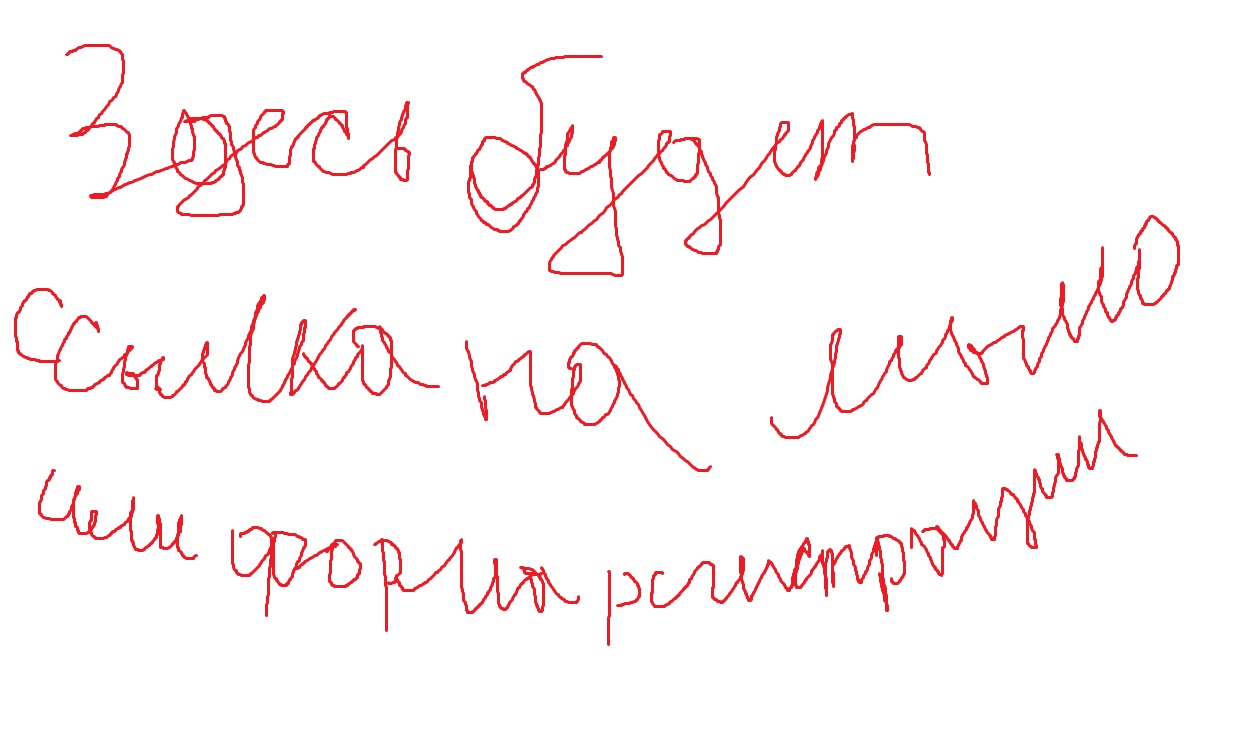 Здесь будет
ссылка на мыло
или форма регистрации